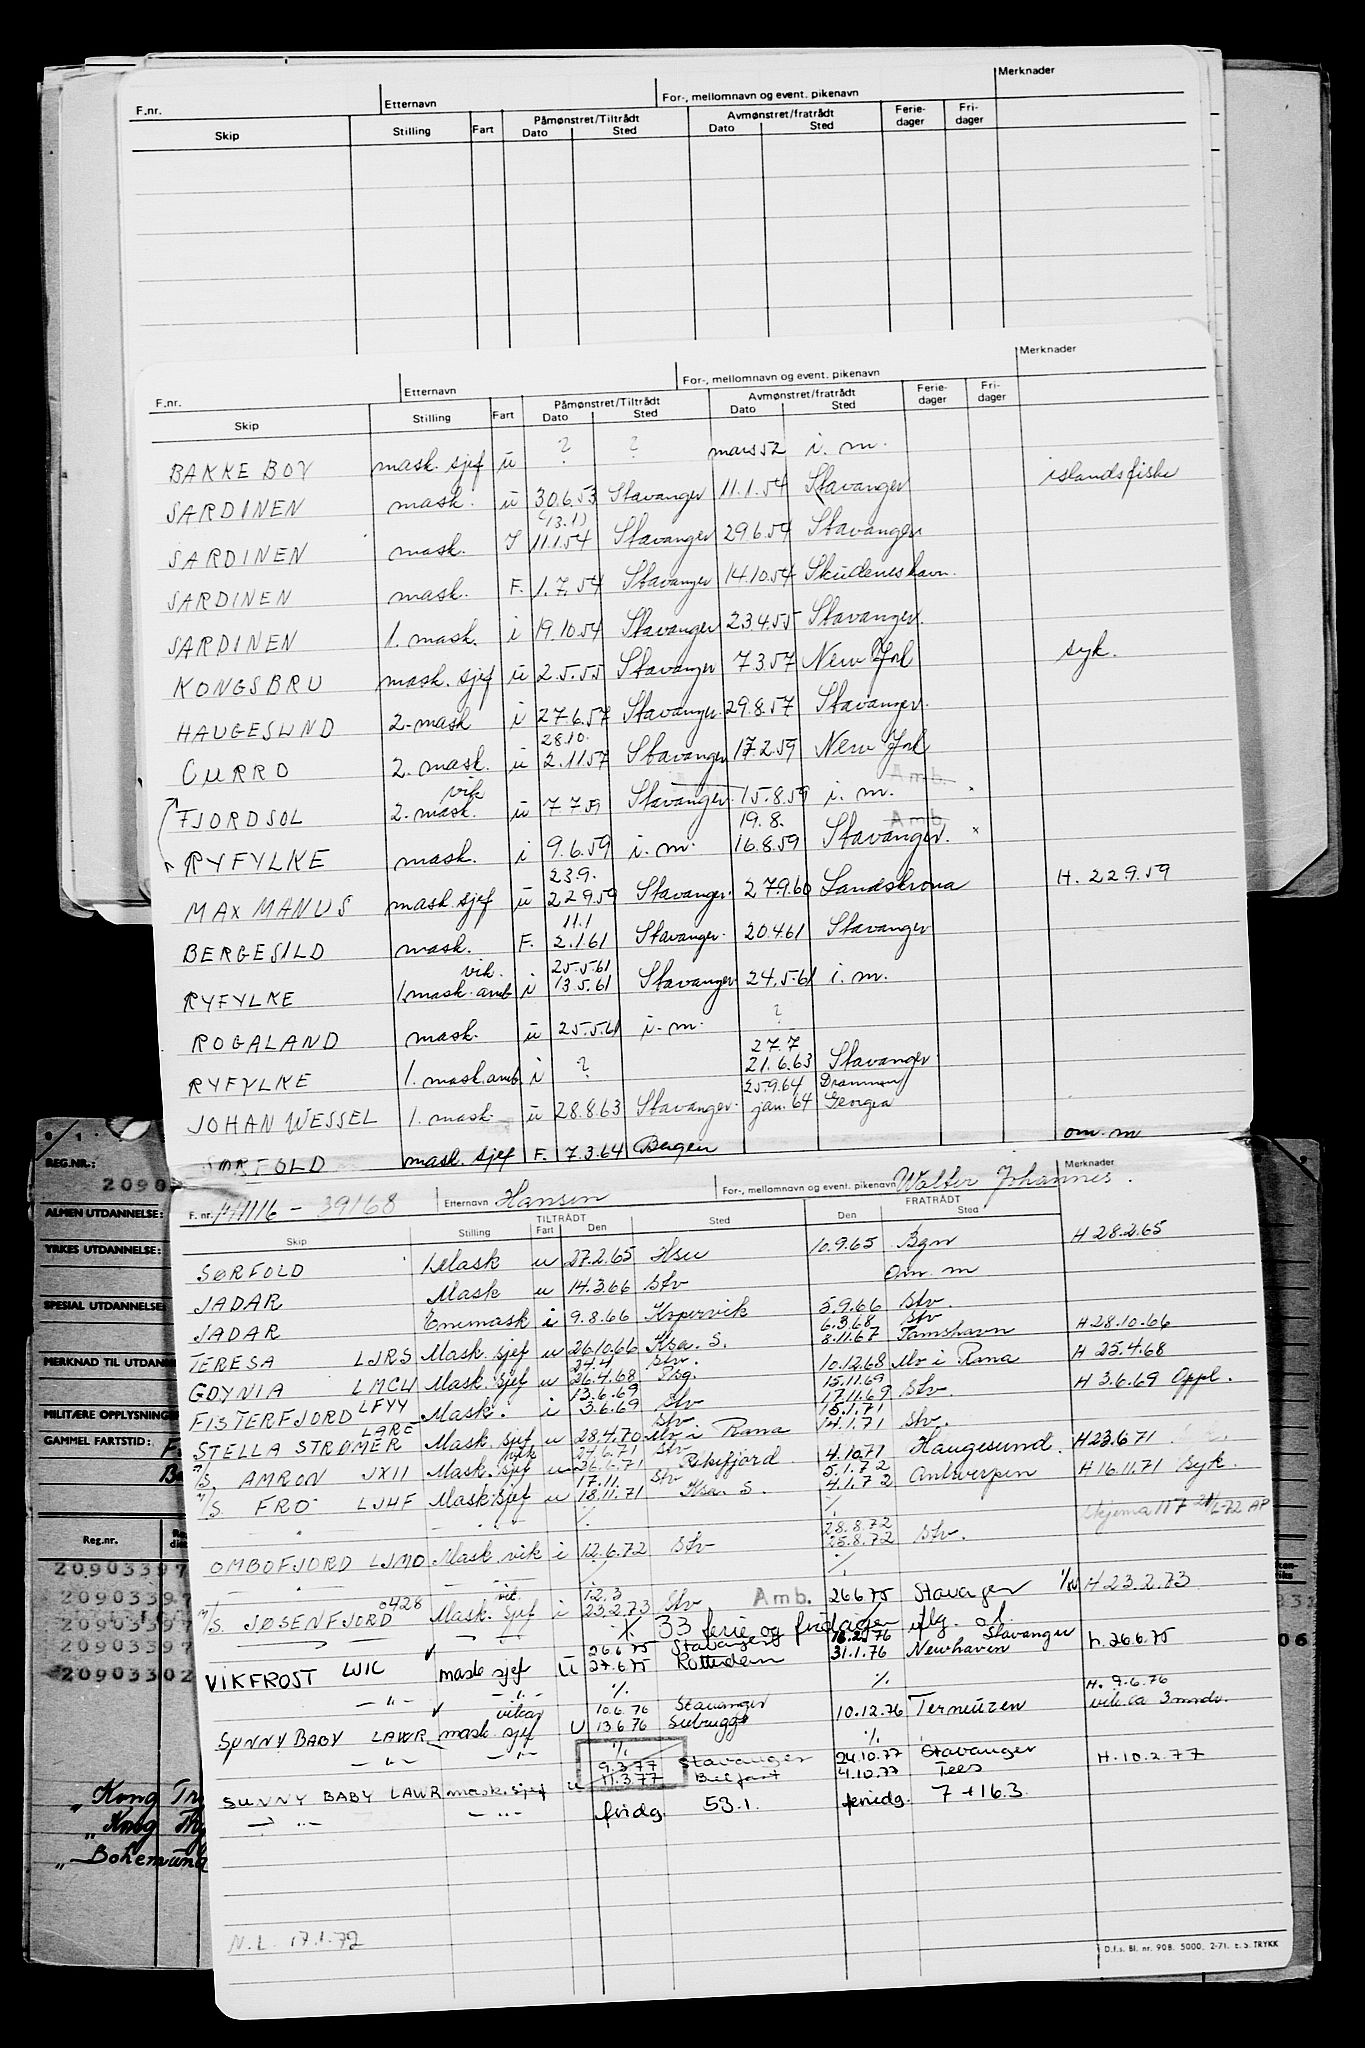 F.nr. Etternavn For-, mellomnavn og event. pikenavn Merknader
Skip Stilling Fart Påmønstret/Tiltrådt Dato Sted Avmønstret/fratrådt Dato Sted Ferie-dager Fri-dager
F.nr. Etternavn For-, mellomnavn og event. pikenavn Merknader
Skip Stilling Fart Påmønstret/Tiltrådt Dato Sted Avmønstret/fratrådt Dato Sted Ferie-dager Fri-dager
BAKKE BOY mask. sjef u ? ? mars 52 i. m.
SARDINEN mask. u 30.6.53 Stavanger 11.1.54 Stavanger islandsfiske
(13.1)
SARDINEN mask. 11.1.54 Stavanger 29.6.54 Stavanger
SARDINEN mask. F. 1.7.54 Stavanger 14.10.54 Skudeneshavn.
SARDINEN 1. mask. i 19.10.54 Stavanger 23.4.55 Stavanger.
KONGSBRU mask. sjef u 2.5.55 Stavanger 7.3.57 New York syk.
HAUGESUND 2. mask i 27.6.57 Stavanger 29.8.57 Stavanger.
28.10.
CURRO 2. mask. u 2.11.57 Stavanger 17.2.59 New York
vik Amb.
FJORDSOL 2. mask. u 7.7.59 Stavanger. 15.8.59 i. m.
19.8. Amb.
RYFYLKE mask. i 9.6.59 i. m. 16.8.59 Stavanger. x
23.9.
MAX MANUS mask. sjef u 22.9.59 Stavanger. 27.9.60 Landskrona H. 22.9.59
11.1
BERGESILD mask. F. 2.1.61 Stavanger. 20.4.61 Stavanger
vik. 25.5.61
RYFYLKE 1. mask. amb i 13.5.61 Stavanger 24.5.61 i. m.
ROGALAND mask. u 25.5.61 i. m. ?
27.7
RYFYLKE 1. mask. amb. i ? 21.6.63 Stavanger
25.9.64 Drammen
JOHAN WESSEL 1. mask. u 28.8.63 Stavanger. jan. 64 Georgia
SØRFOLD mask. sjef F. 7.3.64 Bergen om. m
F. nr. 141116 - 39168 Etternavn Hansen For-, mellomnavn og event. pikenavn Walter Johannes. Merknader
Skip Stilling TILTRÅDT Fart Den Sted FRATRÅDT Den Sted
SØRFOLD 1.Mask u 27.2.65 Hsu 10.9.65 Bgn H 28.2.65
JADAR Mask u 14.3.66 Stv Om. m
JADAR Enemask i 9.8.66 Kopervik 5.9.66 Stv.
6.3.68 Stv
TERESA LJRS Mask. sjef u 26.10.66 Ksa. S. 8.11.67 Tamshavn H 28.10.66
24.4 Stv.
GDYNIA LMCW Mask. sjef u 26.4.68 Pbg. 10.12.68 Mo i Rana H 25.4.68
13.6.69 15.11.69
FISTERFJORD LFYY Mask. i 3.6.69 Stv 17.11.69 Stv. H 3.6.69 Oppl.
LARC Stv 15.1.71
STELLA STRØMER Mask. sjef u 28.4.70 Mo i Rana 14.1.71 Stv.
24.6.71 Stv
M/S. AMRON JXII Mask. sjef u 26.6.71 Rekefjord 4.10.71 Haugesund. H 23.6.71
17.11 Stv 5.1.72
M/S. FRO LJHF Mask. sjef u 18.11.71 Ksa. S. 4.1.72 Antwerpen H 16.11.71 Syk.
" % % Skjema 117 21/2-72 AP
28.8.72
OMBOFJORD LJMO Mask. vik i 12.6.72 Stv 25.8.72 Stv.
" % %
vik. 12.3
M/S. JØSENFJORD 0428 Mask. sjef i 23.2.73 Stv. Amb. 26.6.75 Stavanger H 23.2.73
% 33 ferie og fridager iflg. o.l.
26.6.75 Stavanger Stavanger
VIKFROST LWIL mask sjef U 27.6.75 Rotterdam 31.1.76 Newhaven h. 26.6.75
— " — — " — % %
vikar 10.6.76 Stavanger H. 9.6.76
SUNNY BABY LAWR mask. sjef U 13.6.76 Seebrugge 10.12.76 Terneuzen vik ca 3 mnd.
— " — — " — % %
9.3.77 Stavanger 24.10.77 Stavanger
SUNNY BABY LAWR mask. sjef u 11.3.77 Belfast 4.10.77 Tees H. 10.2.77
— " — — " — fridg. 53.1. feriedg. 7 + 16.3
N.L. 17.1.72
D.f.s. Bl. nr. 908. 5000. 2-71. E.S. TRYKK
REG.NR.:
20903
ALMEN UTDANNELSE:
YRKES UTDANNELSE:
SPESIAL UTDANNELSE:
MERKNAD TIL UTDAN
MILITÆRE OPPLYSNING
GAMMEL FARTSTID:
Reg.nr.
20903397
20903397
20903397
20903397
20903302
" Kong
" Kong
" Bohemund